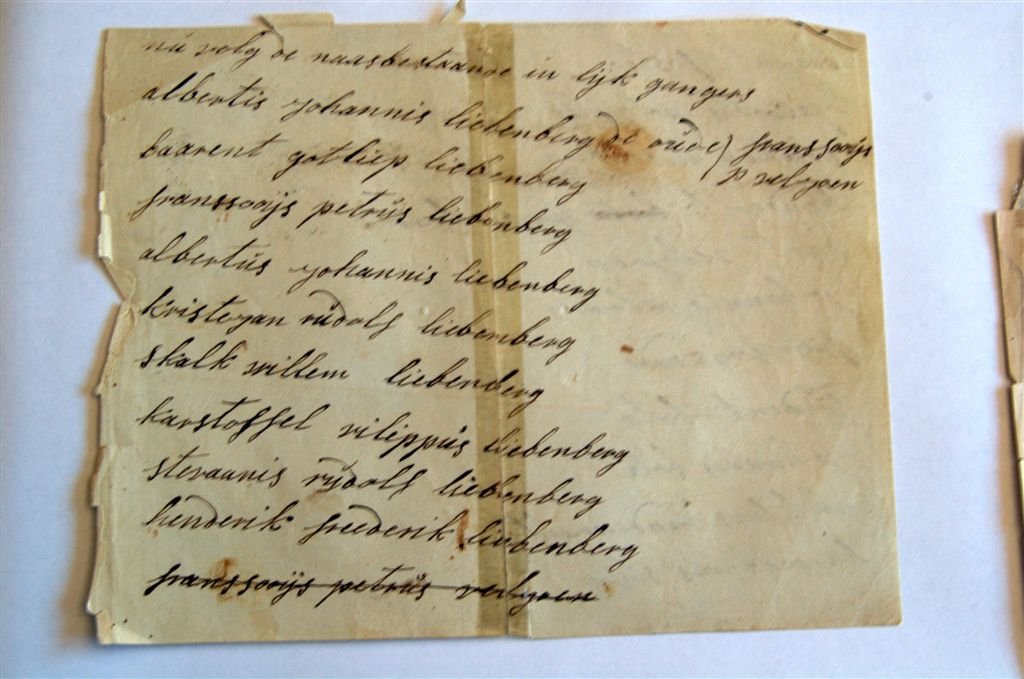 nú volg de naasbestaande in lijk gangers
albertis johannis liebenberg de oúde) franssooijs
p veljoen
baarent gotliep liebenberg
franssooijs petrús liebenberg
albertús johannis liebenberg
kristejan rúdolf liebenberg
skalk willem liebenberg
karstoffel vilippús liebenberg
stevaanis rúdolf liebenberg
henderik freederik liebenberg
franssooijs petrús veljoen